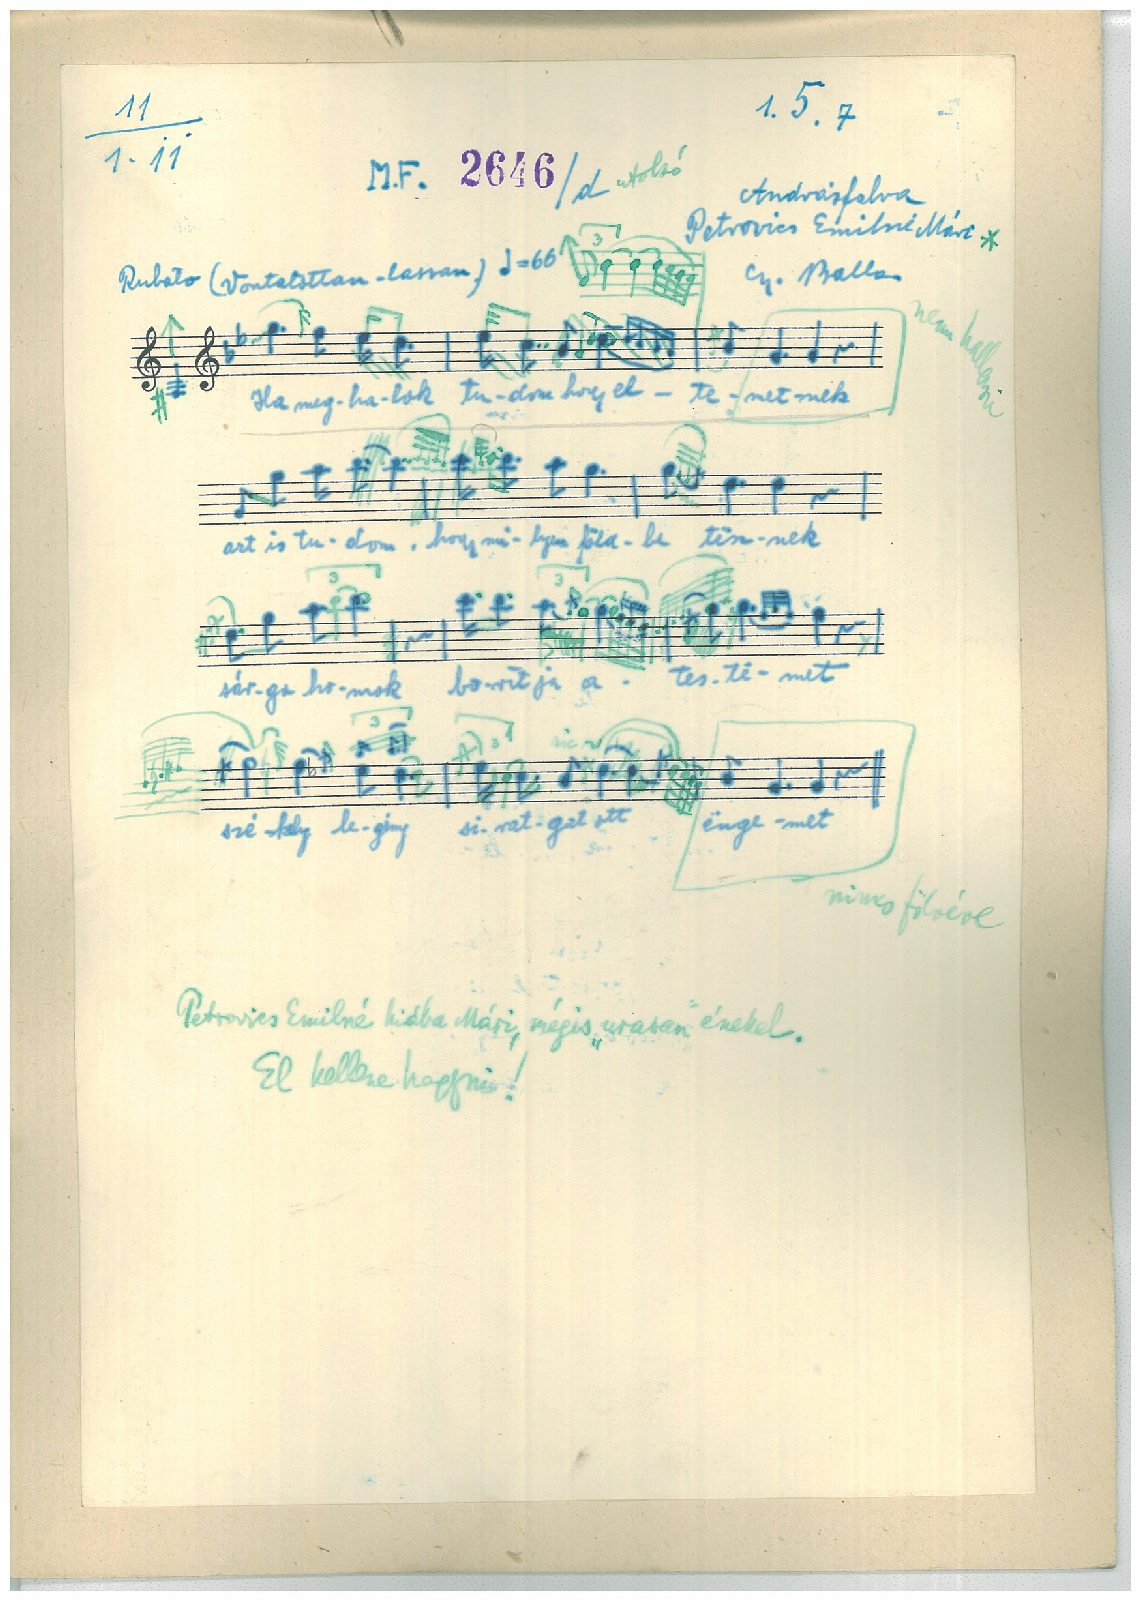 11
1-ii
1. 5. 7
M.F. 2646/d utolsó
Andrásfalva
Petrovics Emilné Mári *
Gy. Balla
Rubato (Vontatottan-lassan) ♩=66
3
nem hallani
Ha meg-ha-lok tu-dom hogy el - te-met-nek
azt is tu-dom, hogy mi-lyen föld-be tesz-nek
3 3
sár-ga ho-mok bo-rít ja a - tes-té-met
3 3 sic
szé-kely le-gény si-rat-gat ott énge-met
nincs fölvéve
Petrovics Emilné hiába Mári, mégis „urasan" énekel.
El kellene hagyni!